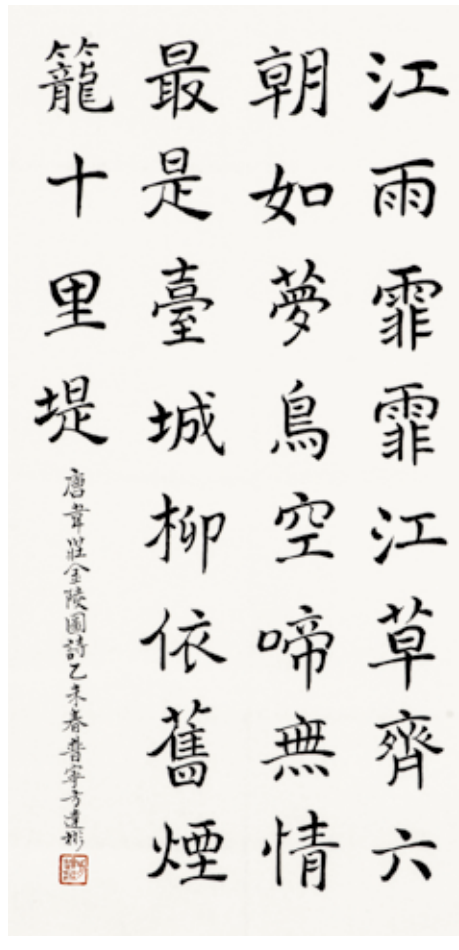 江雨霏霏江草齊六
朝如夢鳥空啼無情
最是臺城柳依舊煙
籠十里堤
唐韋莊金陵圖詩乙未春普寧方達彬